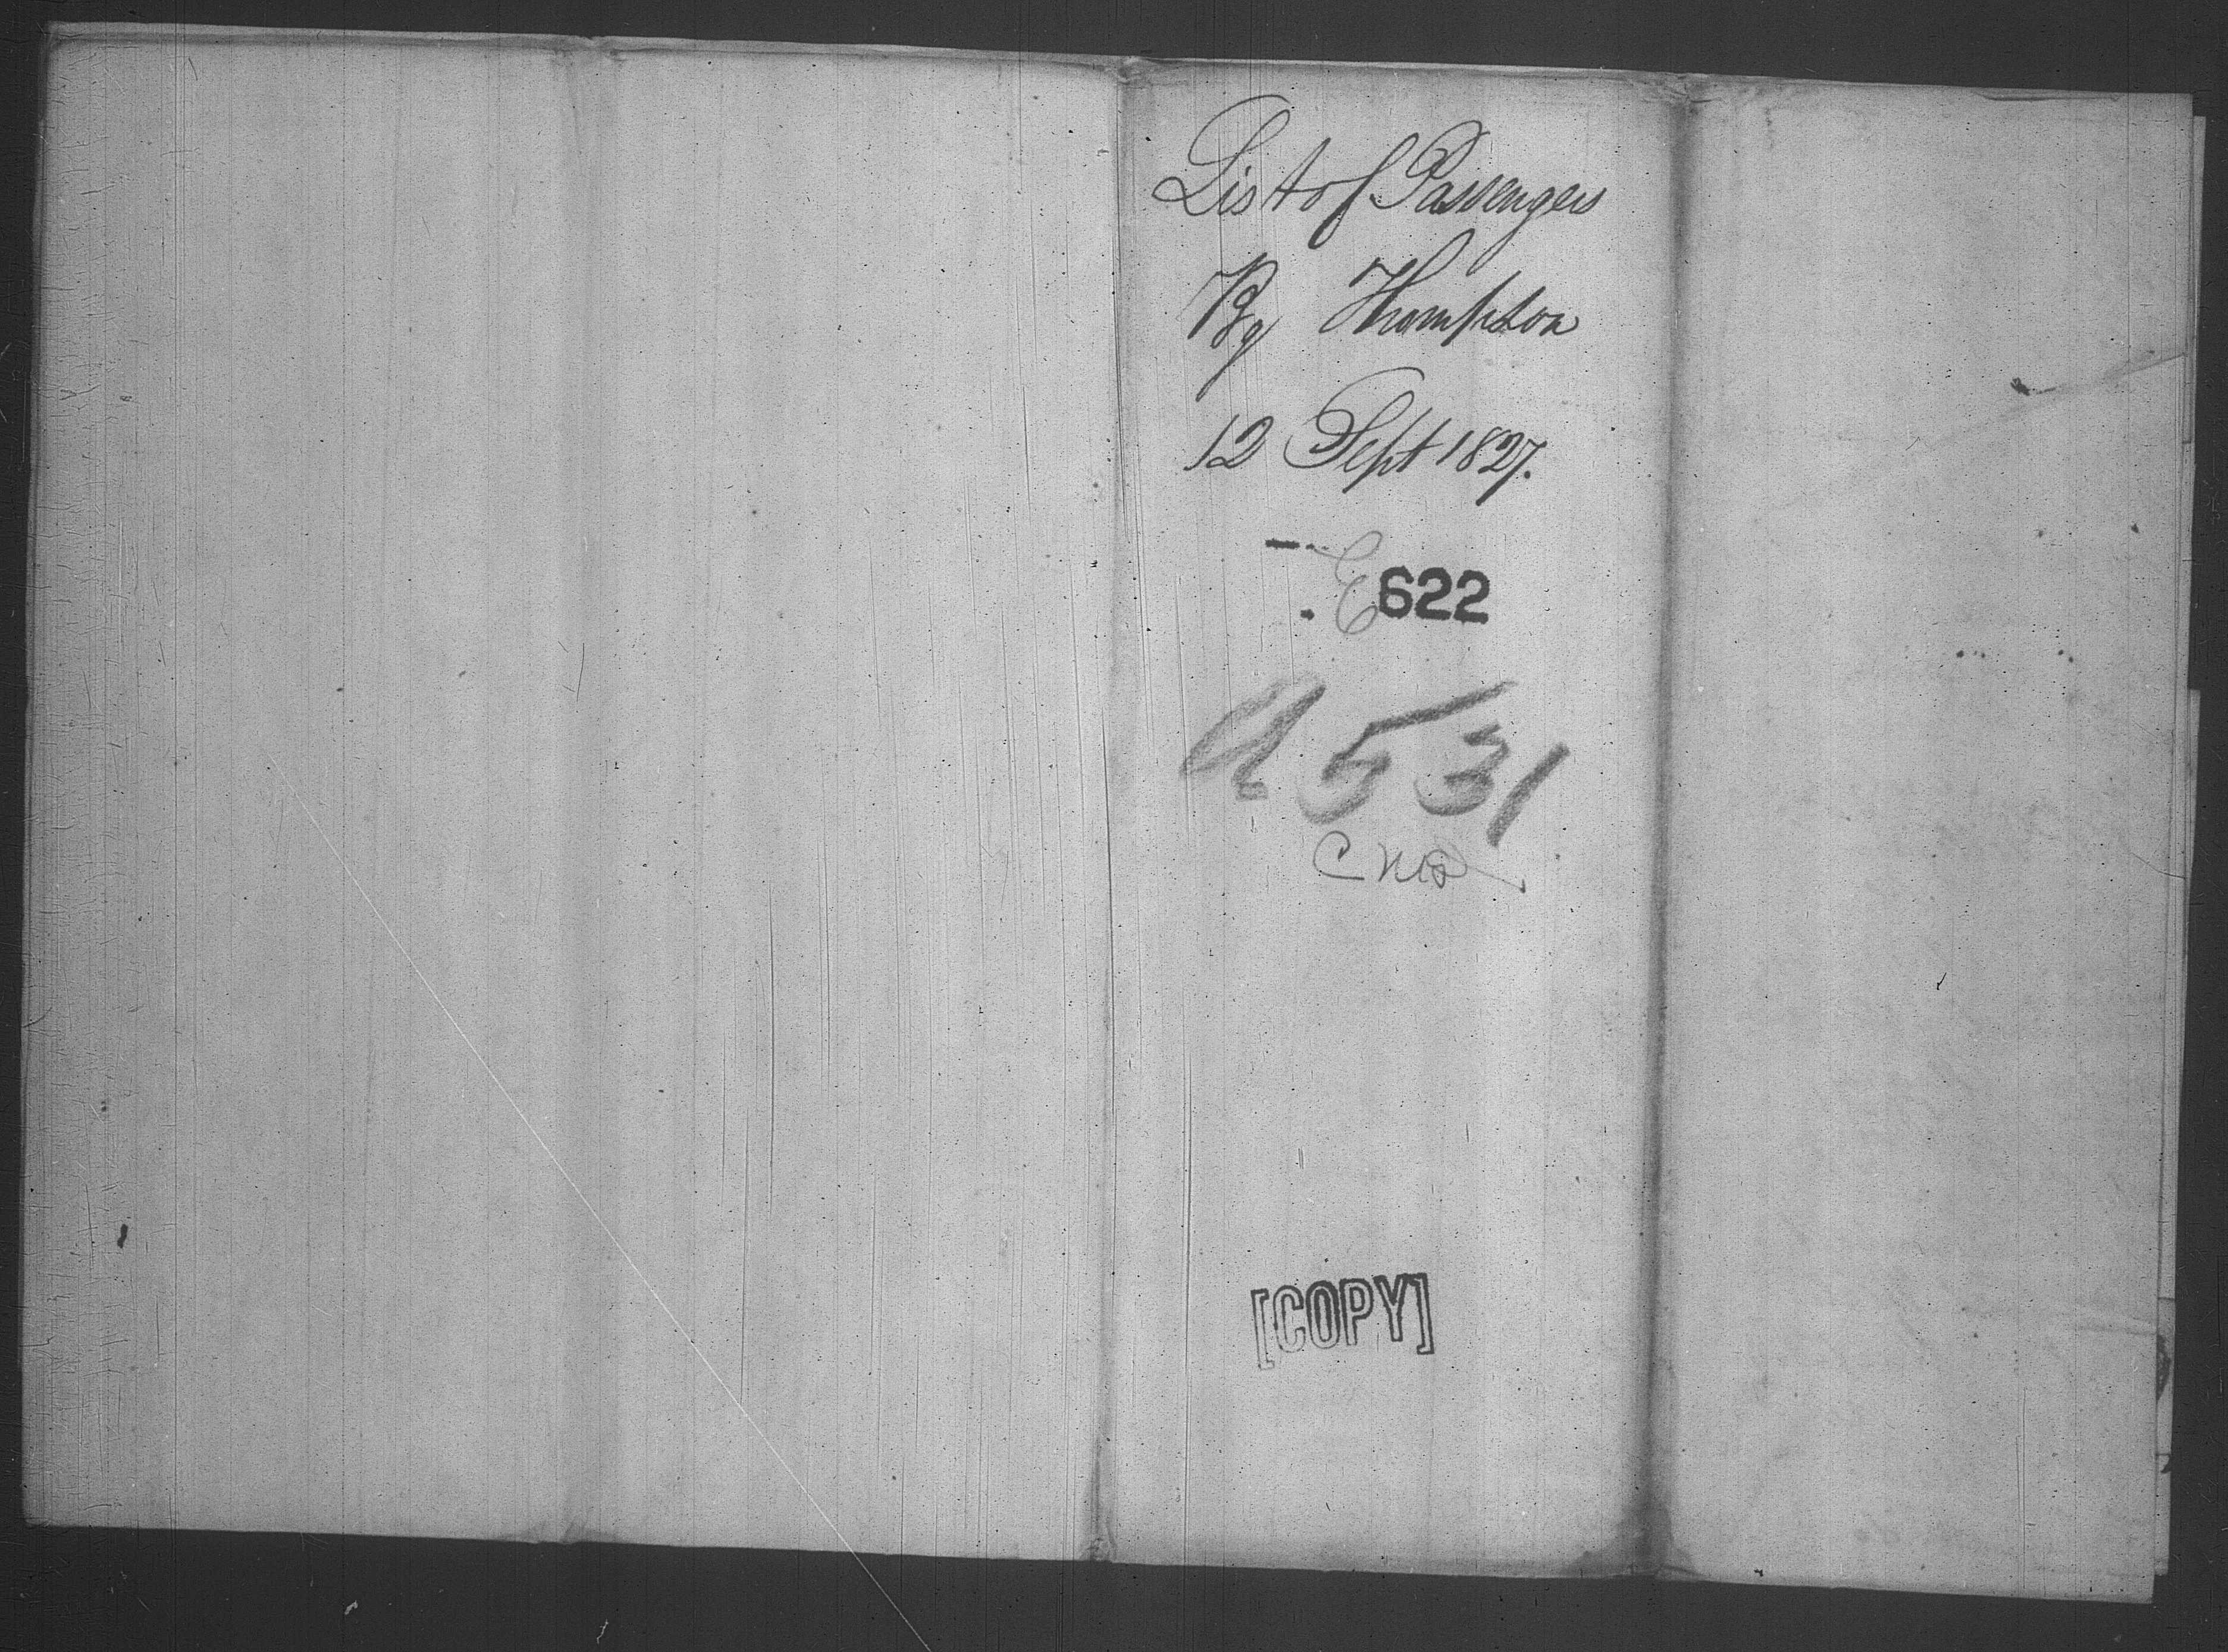 List of Passengers
Bg Thompson
12 Sept 1827.
E622
A531
[COPY]